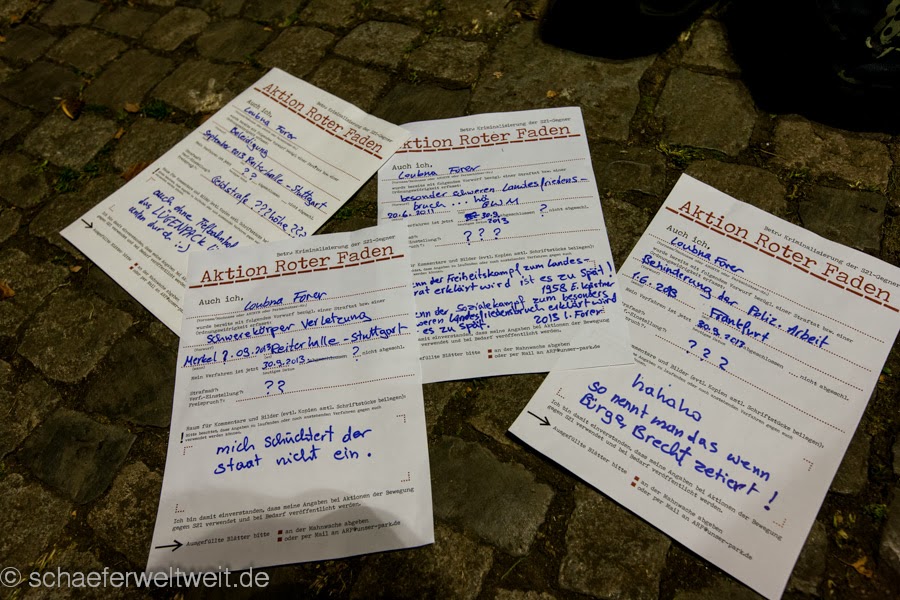 Betr: Kriminalisierung der S21-Gegner
Aktion Roter Faden
Auch ich,
Loubna Forer
Beleidigung
September 2013 Reiterhalle - Stuttgart
??
Geldstrafe ??? höhe ???
auch ohne
wird :)
Betr: Kriminalisierung der S21-Gegner
Aktion Roter Faden
Auch ich,
Loubna Forer
wurde bereits mit folgendem Vorwurf bezügl. einer Straftat bzw. einer
Ordnungswidrigkeit erfasst:
besonder schweren Landesfriedens-
bruch ... hä
20.6.2011 GWM
30.9.
2013
? nicht abgewahl.
? ? ?
der Freiheitskampf zum Landes-
rat erklärt wird ist es zu Spät!
1958 E. Kästner
der Sozialekampf zum besonders
weren Landesfriedensbruch erklärt wird
es zu Spät. 2013 L. Forer
an der Mahnwache abgeben
oder per Mail an ARF@unser-park.de
Betr: Kriminalisierung der S21-Gegner
Aktion Roter Faden
Auch ich,
Loubna Forer
wurde bereits mit folgendem Vorwurf bezügl. einer Straftat bzw. einer
Ordnungswidrigkeit erfasst:
schwere körper Verletzung
Merkel ?.09.2013 Reiterhalle - Stuttgart
Mein Verfahren ist jetzt 30.9.2013 abgeschlossen ? nicht abgeschl.
Strafmaß?:
Verf.-Einstellung?:
Freispruch?:
??
Raum für Kommentare und Bilder (evtl. Kopien amtl. Schriftstücke beilegen):
mich schüchtert der
staat nicht ein.
Ich bin damit einverstanden, dass meine Angaben bei Aktionen der Bewegung
gegen S21 verwendet und bei Bedarf veröffentlicht werden.
Ausgefüllte Blätter bitte an der Mahnwache abgeben
oder per Mail an ARF@unser-park.de
Betr: Kriminalisierung der S21-Gegner
Aktion Roter Faden
Auch ich,
Loubna Forer
wurde bereits mit folgendem Vorwurf bezügl. einer Straftat bzw. einer
Behinderung der Poliz. Arbeit
1.6.2013 Frankfurt
Mein Verfahren ist jetzt 30.9.2013 abgeschlossen ... nicht abgeschl.
Strafmaß?:
Verf.-Einstellung?:
Freispruch?:
? ? ?
Raum für Kommentare und Bilder (evtl. Kopien amtl. Schriftstücke beilegen):
hahaha
so nennt man das wenn
Bürger Brecht zetiert!
Ich bin damit einverstanden, dass meine Angaben bei Aktionen der Bewegung
gegen S21 verwendet und bei Bedarf veröffentlicht werden.
Ausgefüllte Blätter bitte an der Mahnwache abgeben
oder per Mail an ARF@unser-park.de
© schaeferweltweit.de